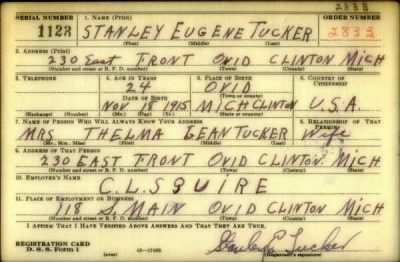 2833
SERIAL NUMBER 1. NAME (Print) ORDER NUMBER
1123 STANLEY EUGENE TUCKER 2833
(First) (Middle) (Last)
2. ADDRESS (Print)
230 East FRONT OVID CLINTON MICH
(Number and street or R. F. D. number) (Town) (County) (State)
3. TELEPHONE 4. AGE IN YEARS 5. PLACE OF BIRTH 6. COUNTRY OF CITIZENSHIP
24 OVID
DATE OF BIRTH (Town or county)
Nov 18 1915 MICH CLINTON U.S.A.
(Mo.) (Day) (Yr.) (State or country)
7. NAME OF PERSON WHO WILL ALWAYS KNOW YOUR ADDRESS 8. RELATIONSHIP OF THAT PERSON
MRS THELMA LEAN TUCKER Wife
(Mr., Mrs., Miss) (First) (Middle) (Last)
9. ADDRESS OF THAT PERSON
230 EAST FRONT OVID CLINTON MICH
(Number and street or R. F. D. number) (Town) (County) (State)
10. EMPLOYER'S NAME
C.L. SQUIRE
11. PLACE OF EMPLOYMENT OR BUSINESS
118 S MAIN OVID CLINTON MICH
(Number and street or R. F. D. number) (Town) (County) (State)
I AFFIRM THAT I HAVE VERIFIED ABOVE ANSWERS AND THAT THEY ARE TRUE.
REGISTRATION CARD
D. S. S. Form 1 (over) 16—17105 Stanley E Tucker
(Registrant's signature)